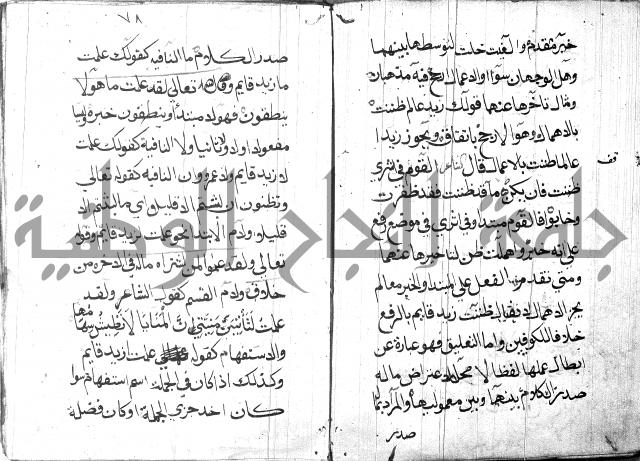 خبر مقدم والغيت خلت لتوسطها بينهما
وهل الوجهان سوا او الاعمال ارجح فيه مذهبان
ومثال تاخرها عنهما قولك زيد عالم ظننت
بالاهمال وهو الارجح باتفاق ويجوز زيدا
عالما ظننت بالاعمال قال القوم في اثري
قف
ظننت فان يكن ما قد ظننت فقد ظفرت
وخابوا فالقوم مبتدا وفي اثري في موضع رفع
على انه خبر واهملت ظن لتاخرها عنهما
ومتى تقدم الفعل على المبتدا والخبر معا لم
يجز الاهمال لا يقال ظننت زيد قايم بالرفع
خلافا للكوفيين واما التعليق فهو عبارة عن
ابطال عملها لفظا لا محلا لاعتراض ماله
صدر الكلام بينهما وبين معموليها والمراد بما
صدر
٧٨
صدر الكلام ما النافيه كقولك علمت
ما زيد قايم وقال الله تعالى لقد علمت ما هولا
ينطقون فهولا مبتدا وينطقون خبره وليسا
مفعولا اولا وثانيا ولا النافية كقولك علمت
لا زيد قايم ولا عمرو وان النافيه كقوله تعالى
وتظنون ان لبثتم الا قليلا اي ما لبثتم الا
قليلا ولام الابتدا نحو علمت لزيد قايم وقوله
تعالى ولقد علموا لمن اشتراه ماله في الاخره من
خلاق ولام القسم كقول الشاعر ولقد
علمت لتأتين منيتي ان المنايا لا تطيش سهامها
والاستفهام كقوله علمت ازيد قايم
وكذلك اذا كان في الجملة اسم استفهام سوا
كان احد جزي الجملة او كان فضلة
جامعة النجاح الوطنية